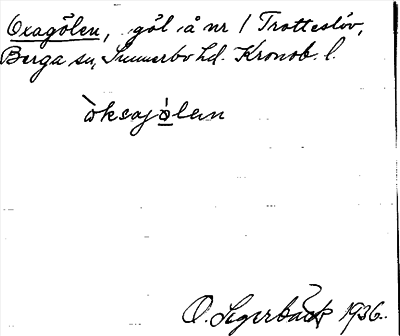 Oxagölen, göl å nr 1 Trotteslöv,
Berga sn, Sunnerbo hd. Kronob. l.
òksajö̀len
O. Segerbäck 1936.